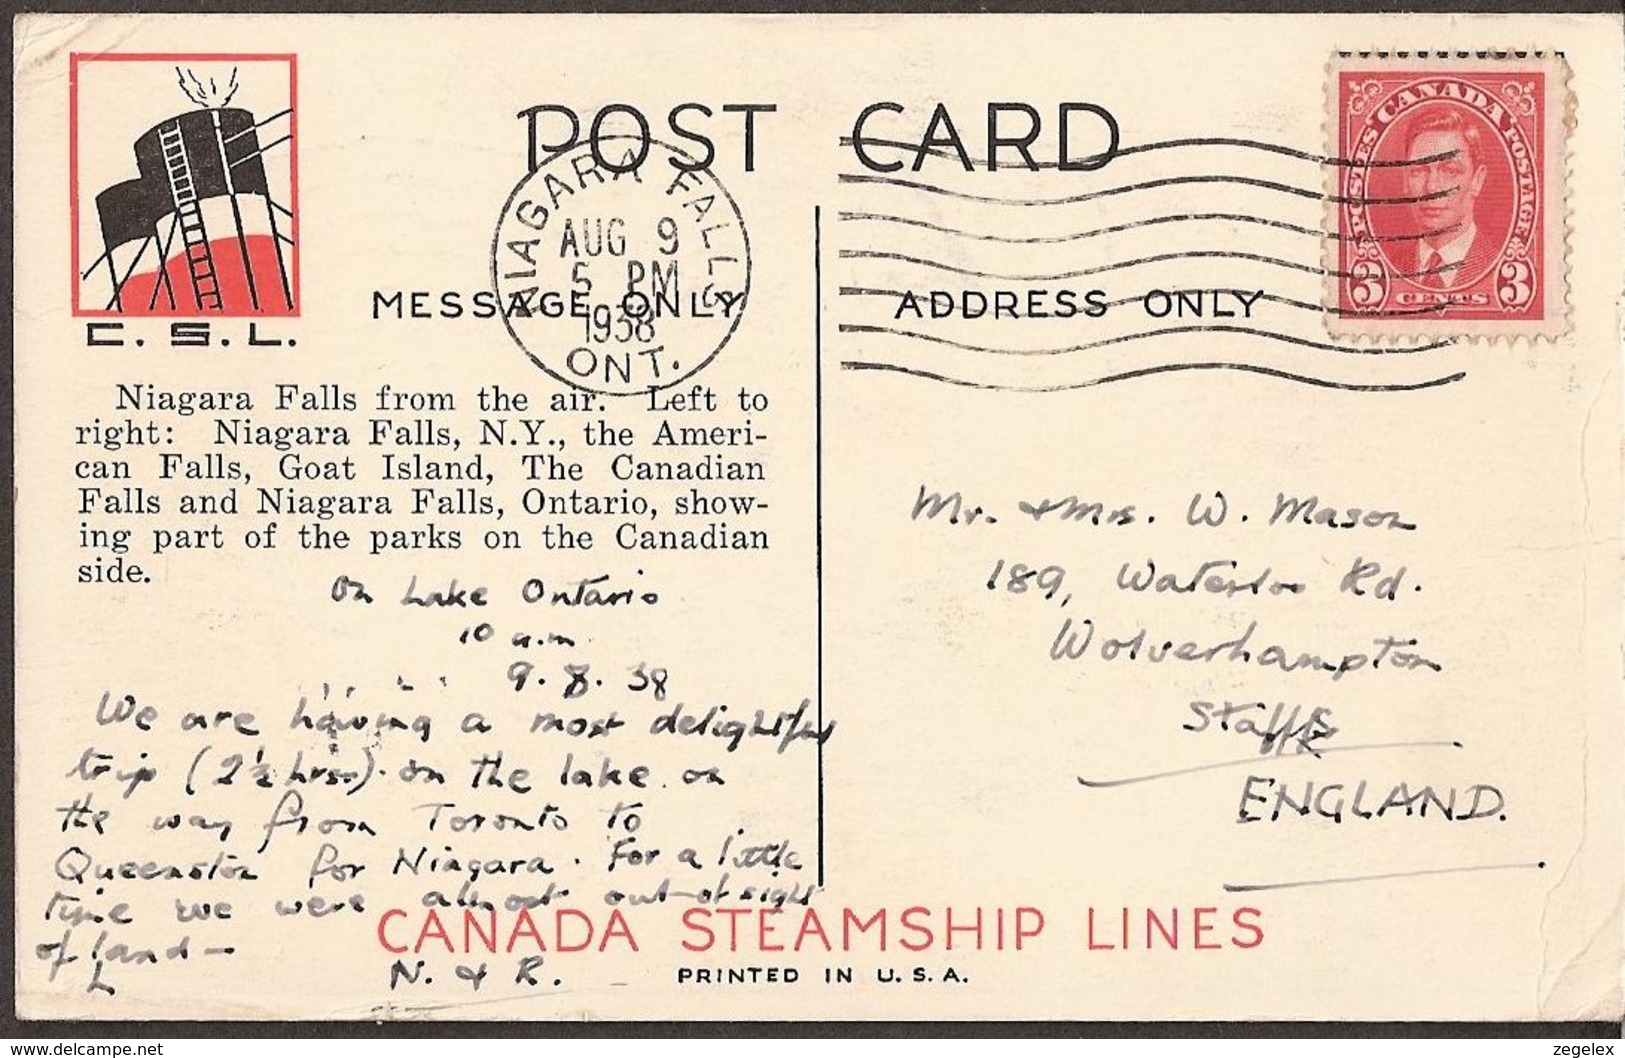 POST CARD
CANADA POSTAGE
POSTES
3 CENTS 3
NIAGARA FALLS
AUG 9
5 PM
1938
ONT.
C. S. L.
MESSAGE ONLY
ADDRESS ONLY
Niagara Falls from the air. Left to
right: Niagara Falls, N.Y., the Ameri-
can Falls, Goat Island, The Canadian
Falls and Niagara Falls, Ontario, show-
ing part of the parks on the Canadian
side.
on Lake Ontario
10 a.m.
9. 8. 38
We are having a most delightful
trip (2½ hrs). on the lake on
the way from Toronto to
Queenston for Niagara. For a little
time we were almost out of sight
of land —
L
N. & R.
Mr. & Mrs. W. Mason
189, Waterloo Rd.
Wolverhampton
Staffs
ENGLAND.
CANADA STEAMSHIP LINES
PRINTED IN U. S. A.
www.delcampe.net
zegelex